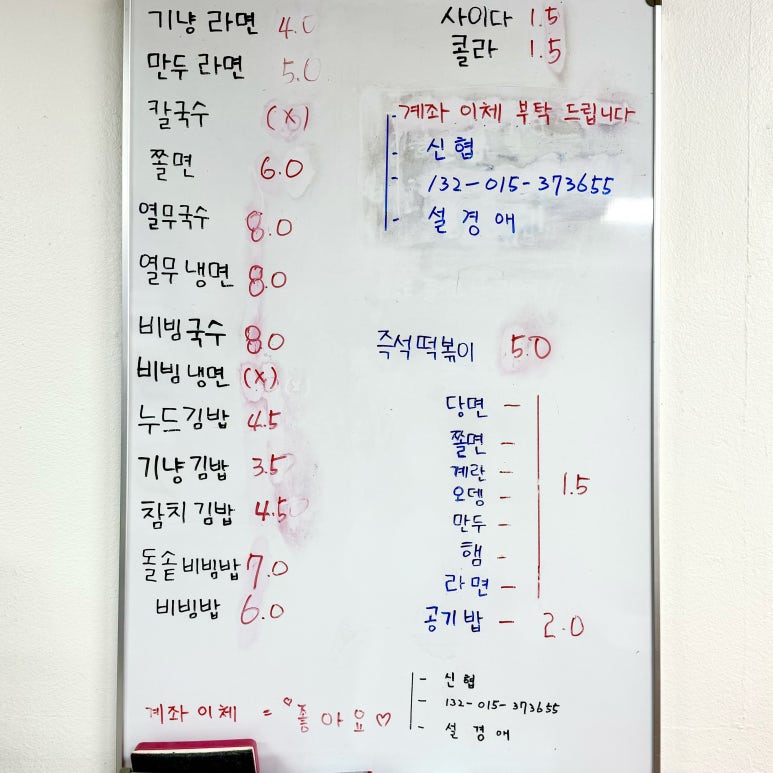 기냥 라면 4.0
만두 라면 5.0
칼국수 (x)
쫄면 6.0
열무국수 8.0
열무 냉면 8.0
비빔국수 8.0
비빔냉면 (x)
누드김밥 4.5
기냥김밥 3.5
참치김밥 4.5
돌솥비빔밥 7.0
비빔밥 6.0
사이다 1.5
콜라 1.5
- 계좌 이체 부탁 드립니다
- 신협
- 132-015-373655
- 설경애
즉석떡볶이 5.0
당면 -
쫄면 -
계란 -
오뎅 -
만두 -
햄 -
라면 -
1.5
공기밥 - 2.0
계좌이체 = ♡좋아요♡
- 신협
- 132-015-373655
- 설경애